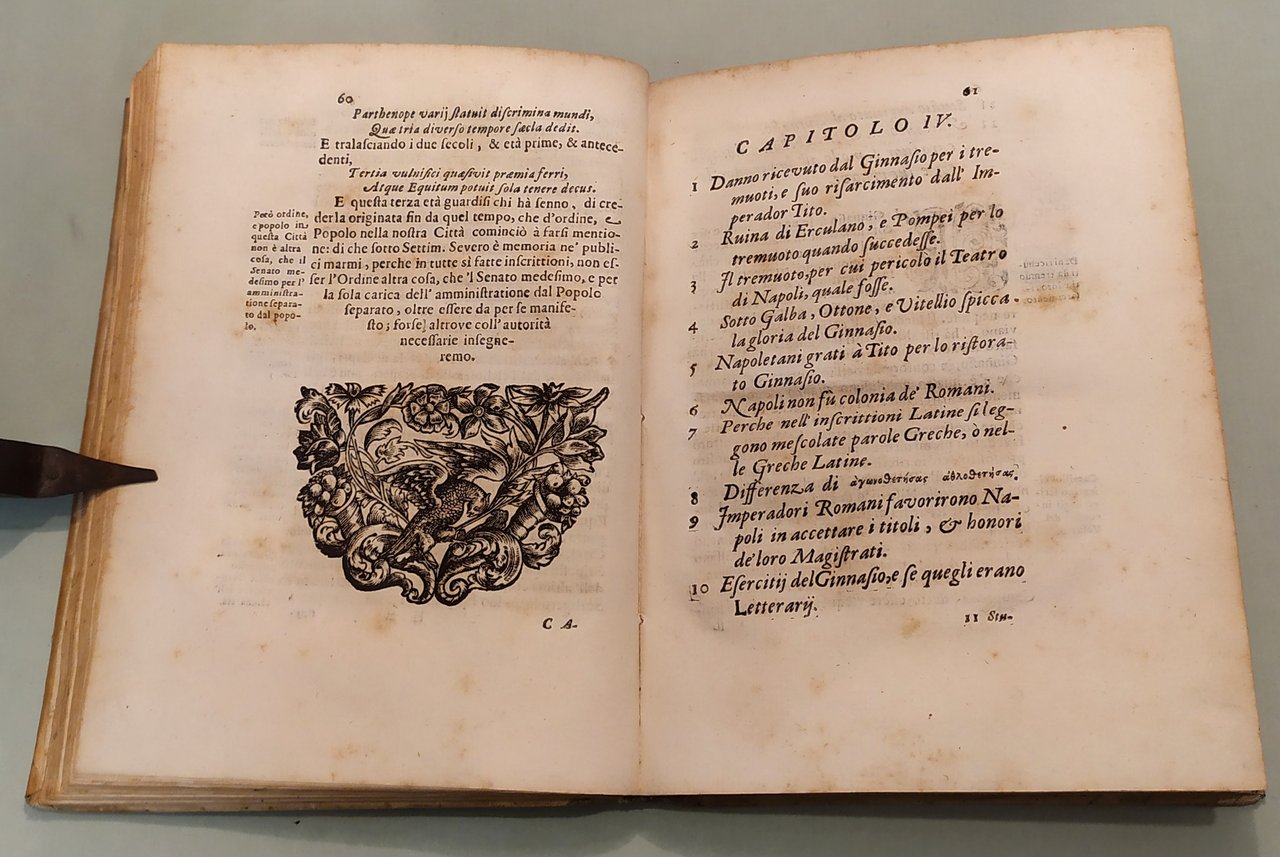 60
Parthenope varij ſtatuit diſcrimina mundi,
Quæ tria diverſo tempore ſæcla dedit.
E tralaſciando i due ſecoli, & età prime, & antece-
denti,
Tertia vulnifici quaſivit præmia ferri,
Atque Equitum potuit ſola tenere decus.
E queſta terza età guardiſi chi hà ſenno, di cre-
derla originata fin da quel tempo, che d'ordine, e
Popolo nella noſtra Città cominciò à farſi mentio-
ne: di che ſotto Settim. Severo è memoria ne' publi-
ci marmi, perche in tutte sì fatte inſcrittioni, non eſ-
ſer l'Ordine altra coſa, che 'l Senato medeſimo, e per
la ſola carica dell' amminiſtratione dal Popolo
ſeparato, oltre eſſere da per ſe manife-
ſto; forſe altrove coll' autorità
neceſſarie inſegne-
remo.
Però ordine,
e popolo in
queſta Città
non è altra
coſa, che il
Senato me-
deſimo per l'
amminiſtra-
tione ſepara-
to dal popo-
lo.
C A-
61
CAPITOLO IV.
1 Danno ricevuto dal Ginnaſio per i tre-
muoti, e ſuo riſarcimento dall' Im-
perador Tito.
2 Ruina di Erculano, e Pompei per lo
tremuoto quando ſuccedeſſe.
3 Il tremuoto, per cui pericolo il Teatro
di Napoli, quale foſſe.
4 Sotto Galba, Ottone, e Vitellio ſpicca
la gloria del Ginnaſio.
5 Napoletani grati à Tito per lo riſtora-
to Ginnaſio.
6 Napoli non fù colonia de' Romani.
7 Perche nell' inſcrittioni Latine ſi leg-
gono meſcolate parole Greche, ò nel-
le Greche Latine.
8 Differenza di ἀγωνοθετήσας ἀθλοθετήσας.
9 Imperadori Romani favorirono Na-
poli in accettare i titoli, & honori
de' loro Magiſtrati.
10 Eſercitij del Ginnaſio, e ſe quegli erano
Letterarij.
11 Stu-